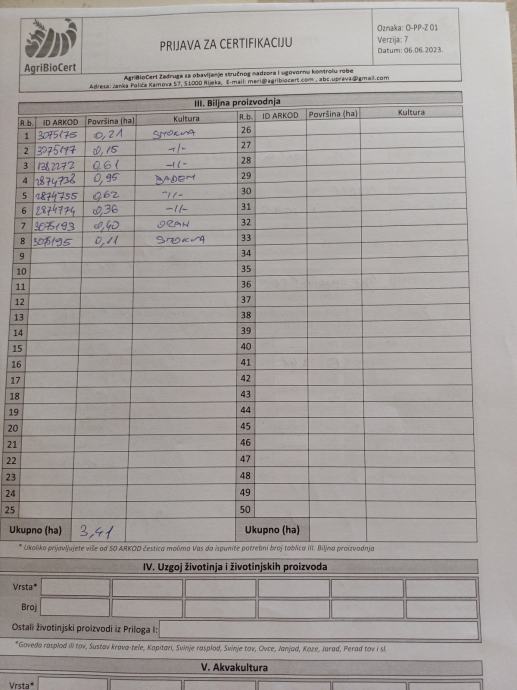 AgriBioCert
PRIJAVA ZA CERTIFIKACIJU
Oznaka: O-PP-Z 01
Verzija: 7
Datum: 06.06.2023.
AgriBioCert Zadruga za obavljanje stručnog nadzora i ugovornu kontrolu robe
Adresa: Janka Polića Kamova 57, 51000 Rijeka, E-mail: meri@agribiocert.com , abc.uprava@gmail.com
III. Biljna proizvodnja
R.b. ID ARKOD Površina (ha) Kultura R.b. ID ARKOD Površina (ha) Kultura
1 3075175 0,21 SMOKVA 26
2 3075177 0,15 -//- 27
3 1382272 0,61 -//- 28
4 2874738 0,95 BADEM 29
5 2874755 0,62 -//- 30
6 2874774 0,36 -//- 31
7 3075193 0,40 ORAH 32
8 3075195 0,11 SMOKVA 33
9 34
10 35
11 36
12 37
13 38
14 39
15 40
16 41
17 42
18 43
19 44
20 45
21 46
22 47
23 48
24 49
25 50
Ukupno (ha) 3,41 Ukupno (ha)
* Ukoliko prijavljujete više od 50 ARKOD čestica molimo Vas da ispunite potrebni broj tablica III. Biljna proizvodnja
IV. Uzgoj životinja i životinjskih proizvoda
Vrsta*
Broj
Ostali životinjski proizvodi iz Priloga I:
*Goveda rasplod ili tov, Sustav krava-tele, Kopitari, Svinje rasplod, Svinje tov, Ovce, Janjad, Koze, Jarad, Perad tov i sl.
V. Akvakultura
Vrsta*